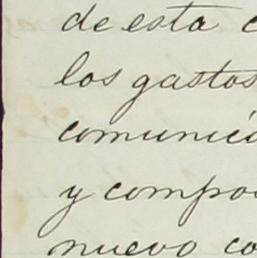 de esta
los gastos
comunica
y compo
nuevo co